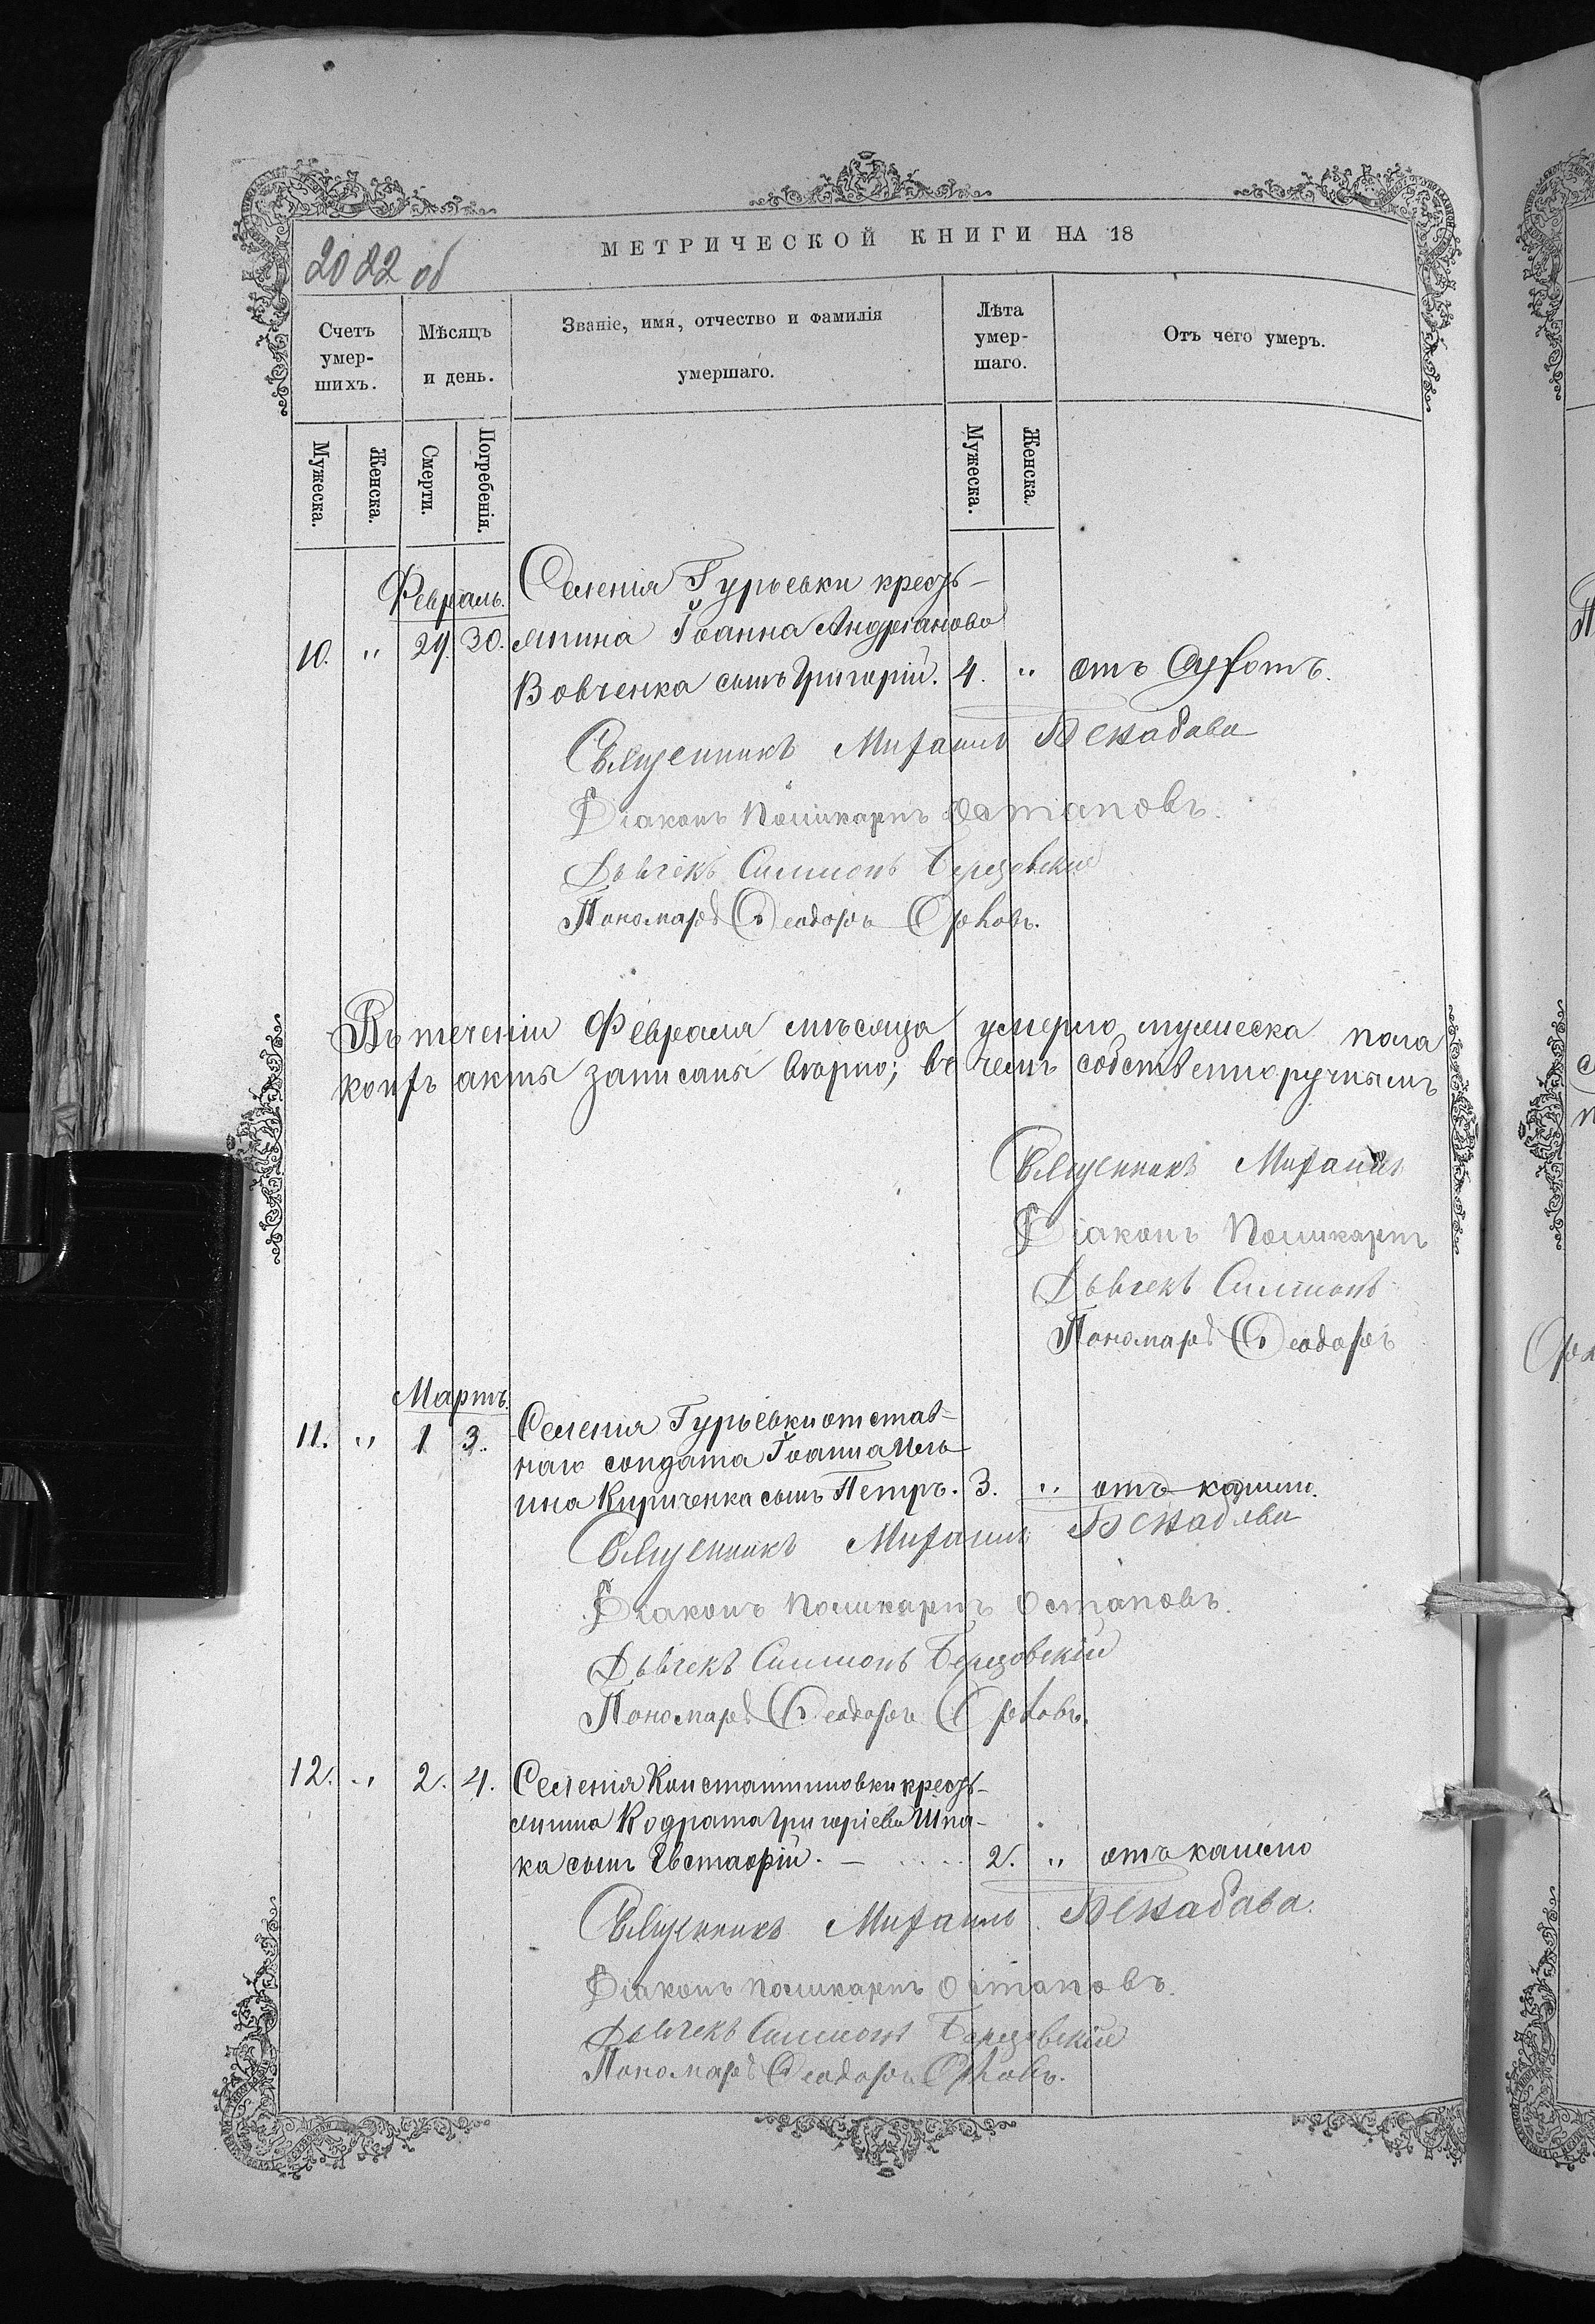 2082 об
МЕТРИЧЕСКОЙ КНИГИ НА 18
Счетъ умер-шихъ.
Мѣсяцъ и день.
Званіе, имя, отчество и фамилія умершаго.
Лѣта умер-шаго.
Отъ чего умеръ.
Мужеска.
Женска.
Смерти.
Погребенія.
Мужеска.
Женска.
Февраль. Селенія Гурьевки кресть-
10. " 29. 30. янина Іоанна Андріанова
Вовченка сынъ Григорій. 4. " отъ
Священникъ Михаилъ
Діаконъ Поликарпъ Остаповъ.
Дьячекъ Симеонъ Березовскій
Пономарь Ѳеодоръ Орловъ.
Въ теченіи Февраля мѣсяца умерло мужеска пола
коихъ акты записаны вѣрно; въ чемъ собственноручнымъ
Священникъ Михаилъ
Діаконъ Поликарпъ
Дьячекъ Симеонъ
Пономарь Ѳеодоръ
Мартъ.
11. " 1 3. Селенія Гурьевки отстав-
наго солдата Іоанна Иль-
ина Кириченка сынъ Петръ. 3. " отъ кашлю.
Священникъ Михаилъ
Діаконъ Поликарпъ Остаповъ.
Дьячекъ Симеонъ Березовскій
Пономарь Ѳеодоръ Орловъ.
12. " 2. 4. Селенія Константиновки кресть-
янина Кодрата Григоріева Шпа-
ка сынъ Евстафій. 2. " отъ кашлю
Священникъ Михаилъ
Діаконъ Поликарпъ Остаповъ.
Дьячекъ Симеонъ Березовскій
Пономарь Ѳеодоръ Орловъ.